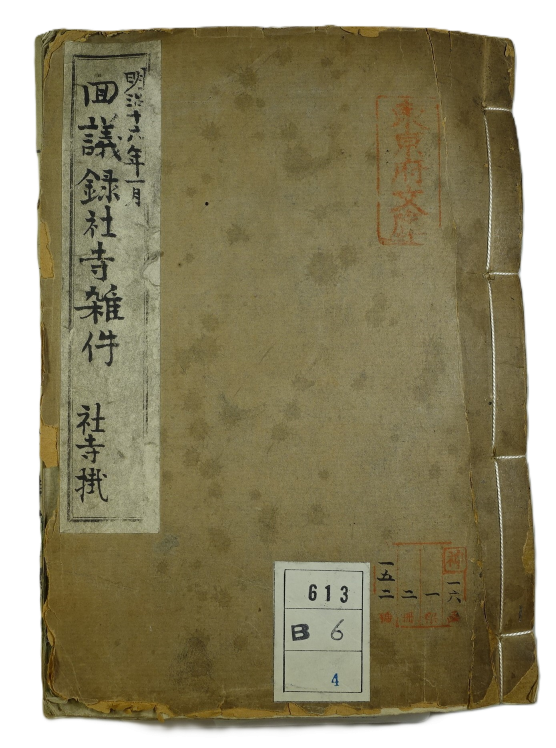 東京府文庫
明治十六年一月
回議録社寺雑件
社寺掛
613
B 6
4
一六
一
二
一五二